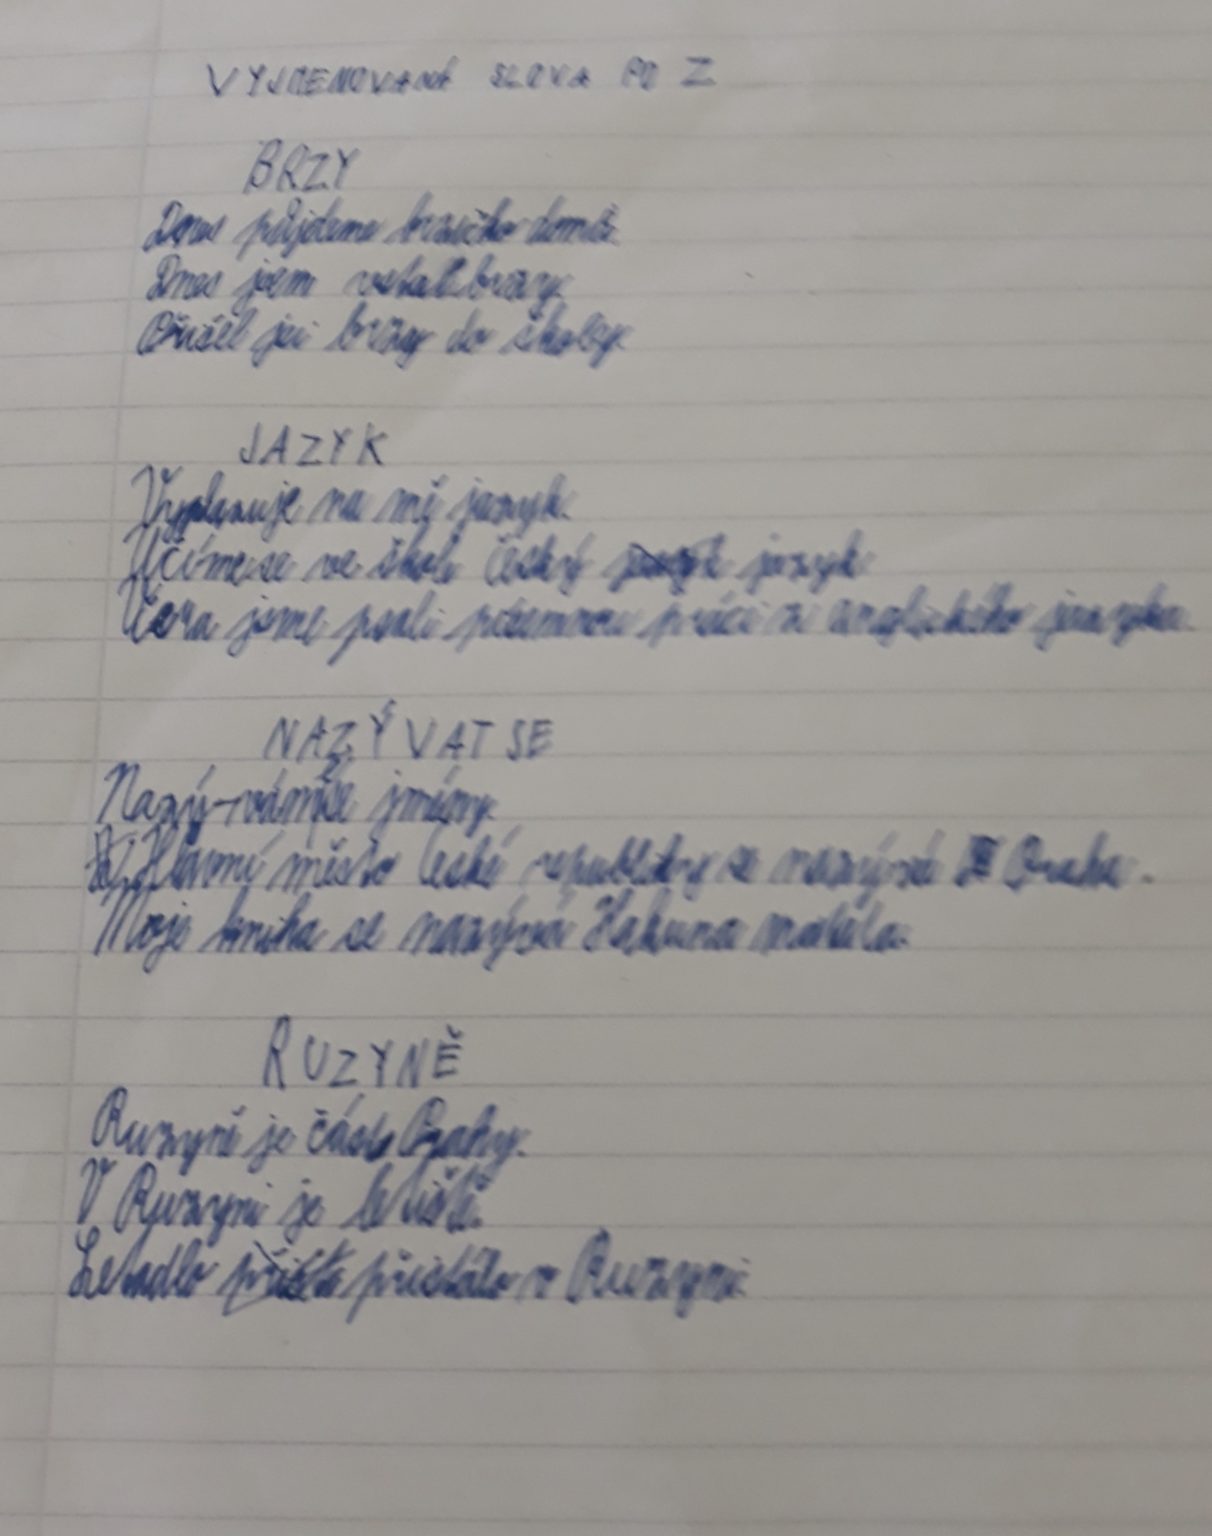 VYJMENOVANÁ SLOVA PO Z
BRZY
Dnes půjdeme brzičko domů.
Dnes jsem vstal brzy.
Přišel jsi brzy do školy.
JAZYK
Vyplazuje na mě jazyk.
Učíme se ve škole český jazyk
Včera jsme psali písemnou práci z anglického jazyka.
NAZÝVAT SE
Nazý-vám še jmény.
Hlavní město České republiky se nazývá Praha.
Moje kniha se nazývá Hakuna matata.
RUZYNĚ
Ruzyně je část Prahy.
V Ruzyni je letiště.
Letadlo přistálo v Ruzyni.